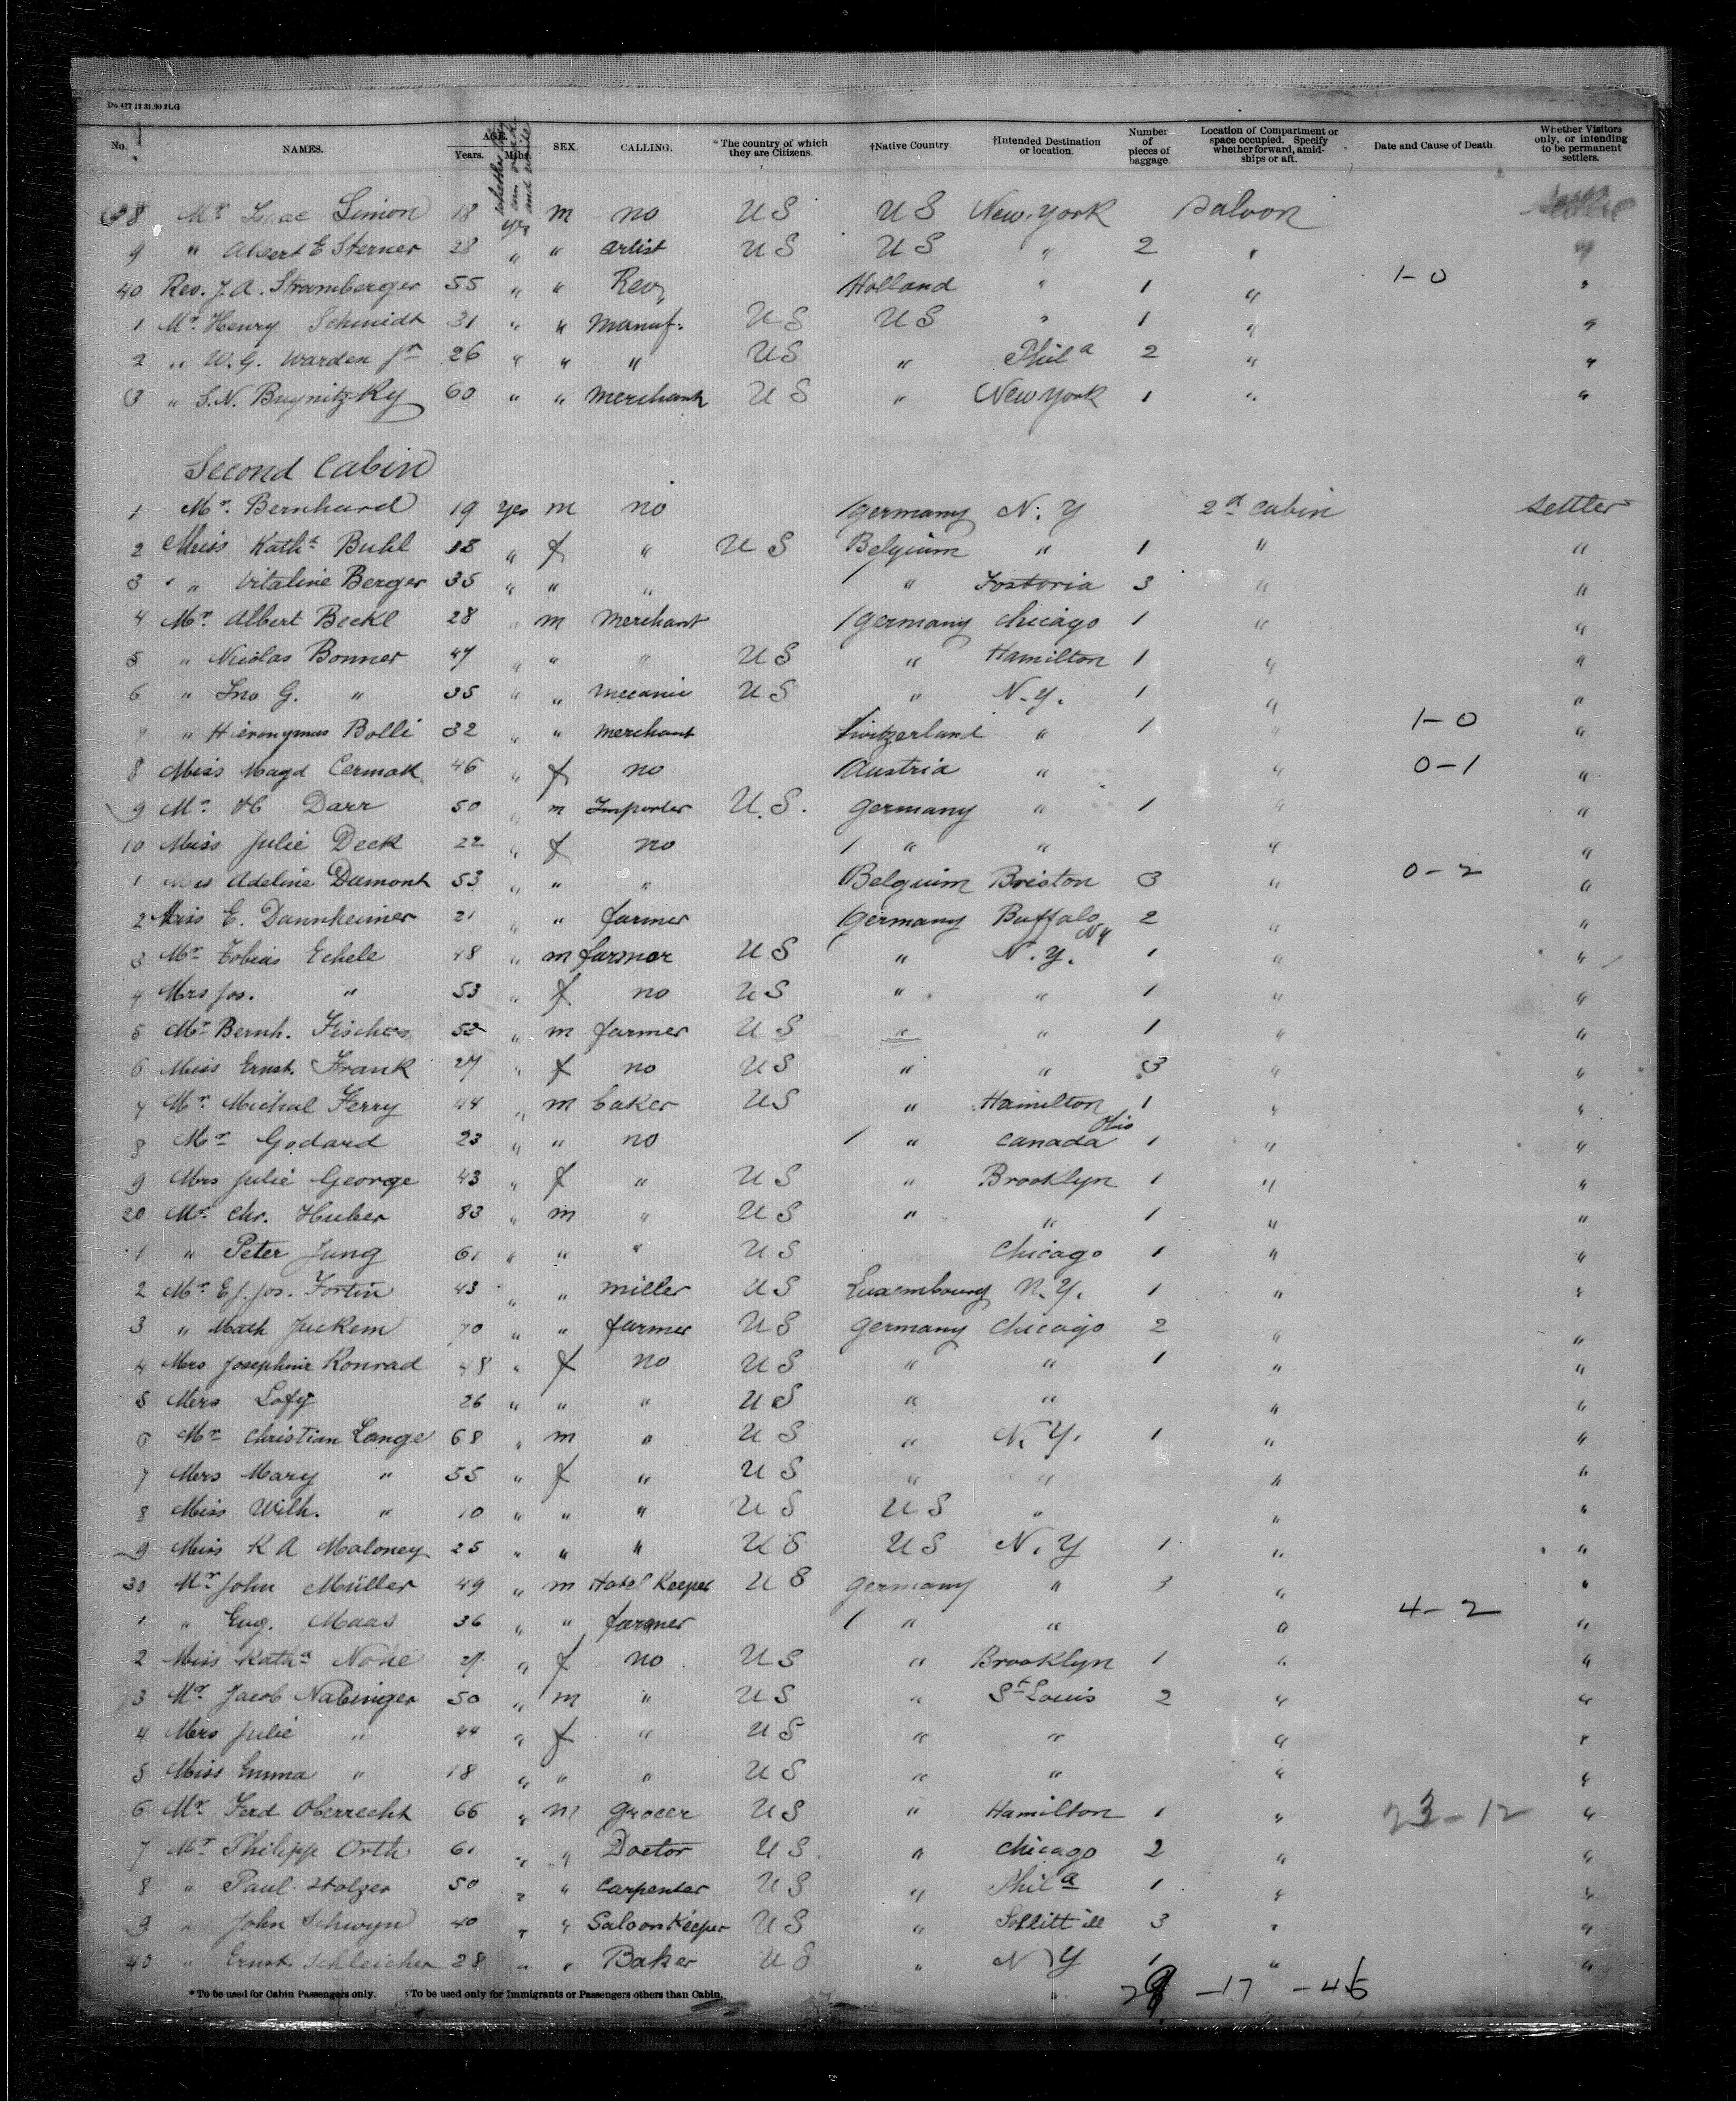 Do 477 12 31.90 2LG
No. NAMES. AGE. Years. Mths. SEX. CALLING. *The country of which they are Citizens. †Native Country †Intended Destination or location. Number of pieces of baggage. Location of Compartment or space occupied. Specify whether forward, amidships or aft. Date and Cause of Death. Whether Visitors only, or intending to be permanent settlers.
38 Mr Isaac Simon 18 yes m no US US New-York Saloon
9 " Albert E Sterner 28 " " artist US US " 2 " "
40 Rev. J. A. Stramberger 55 " " Rev. Holland " 1 " 1-0 "
1 Mr. Henry Schmidt 31 " " Manuf. US US " 1 " "
2 " W.G. Warden Jr 26 " " " US " Phila 2 " "
3 " S.N. Buynitzky 60 " " merchant US " New York 1 " "
Second Cabin
1 Mr. Bernhard 19 yes m no Germany N.Y 2d cabin settler
2 Miss Katha Buhl 18 " f " US Belgium " 1 " "
3 " Vitaline Berger 35 " " " " Fostoria 3 " "
4 Mr. Albert Beckl 28 " m Merchant Germany Chicago 1 " "
5 " Nicolas Bonner 47 " " " US " Hamilton 1 " "
6 " Jno G. " 35 " " mecanic US " N-Y. 1 " "
7 " Hieronymus Bolli 32 " " merchant Switzerland " 1 " 1-0 "
8 Miss Magd Cermak 46 " f no Austria " " 0-1 "
9 Mr. H Darr 50 " m Importer U.S. Germany " 1 " "
10 Miss Julie Deck 22 " f no " " " "
1 Mrs Adeline Dumont 53 " " " Belguim Briston 3 " 0-2 "
2 Miss E. Dannheimer 21 " " farmer Germany Buffalo NY 2 " "
3 Mr Tobias Echele 48 " m farmer US " N.Y. 1 " "
4 Mrs Jos. " 53 " f no US " " 1 " "
5 Mr Bernh. Fischer 52 " m farmer US " " 1 " "
6 Miss Ernst. Frank 27 " f no US " " 3 " "
7 Mr. Michal Ferry 44 " m baker US " Hamilton Ohio 1 " "
8 Mr Godard 23 " " no " Canada 1 " "
9 Mrs Julie George 43 " f " US " Brooklyn 1 " "
20 Mr. Chr. Huber 83 " m " US " " 1 " "
1 " Peter Jung 61 " " " US Chicago 1 " "
2 Mr Ef. Jos. Fortin 43 " " miller US Luxembourg N.Y. 1 " "
3 " Math Juckem 70 " " farmer US Germany Chicago 2 " "
4 Mrs Josephine Konrad 48 " f no US " " 1 " "
5 Mrs Lofy 26 " " " US " " " "
6 Mr Christian Lange 68 " m " US " N.Y. 1 " "
7 Mrs Mary " 55 " f " US " " " "
8 Miss Wilh. " 10 " " " US US " " "
9 Miss K A Maloney 25 " " " US US N.Y 1 " "
30 Mr John Müller 49 " m Hotel Keeper US Germany " 3 " "
1 " Eug. Maas 36 " " farmer " " " 4-2 "
2 Miss Katha Nohe 27 " f no US " Brooklyn 1 " "
3 Mr. Jacob Nabinger 50 " m " US " St Louis 2 " "
4 Mrs Julie " 44 " f " US " " " "
5 Miss Emma " 18 " " " US " " " "
6 Mr. Ferd Oberrecht 66 " m grocer US " Hamilton 1 " 23-12 "
7 Mr Philipp Orth 61 " " Doctor US " Chicago 2 " "
8 " Paul Stolzer 50 " " Carpenter US " Phila 1 " "
9 " John Schwyn 40 " " Saloon Keeper US " Sollitt ill 3 " "
40 " Ernst. Schleicher 28 " " Baker US " N Y 1 " "
*To be used for Cabin Passengers only. †To be used only for Immigrants or Passengers others than Cabin.
-17